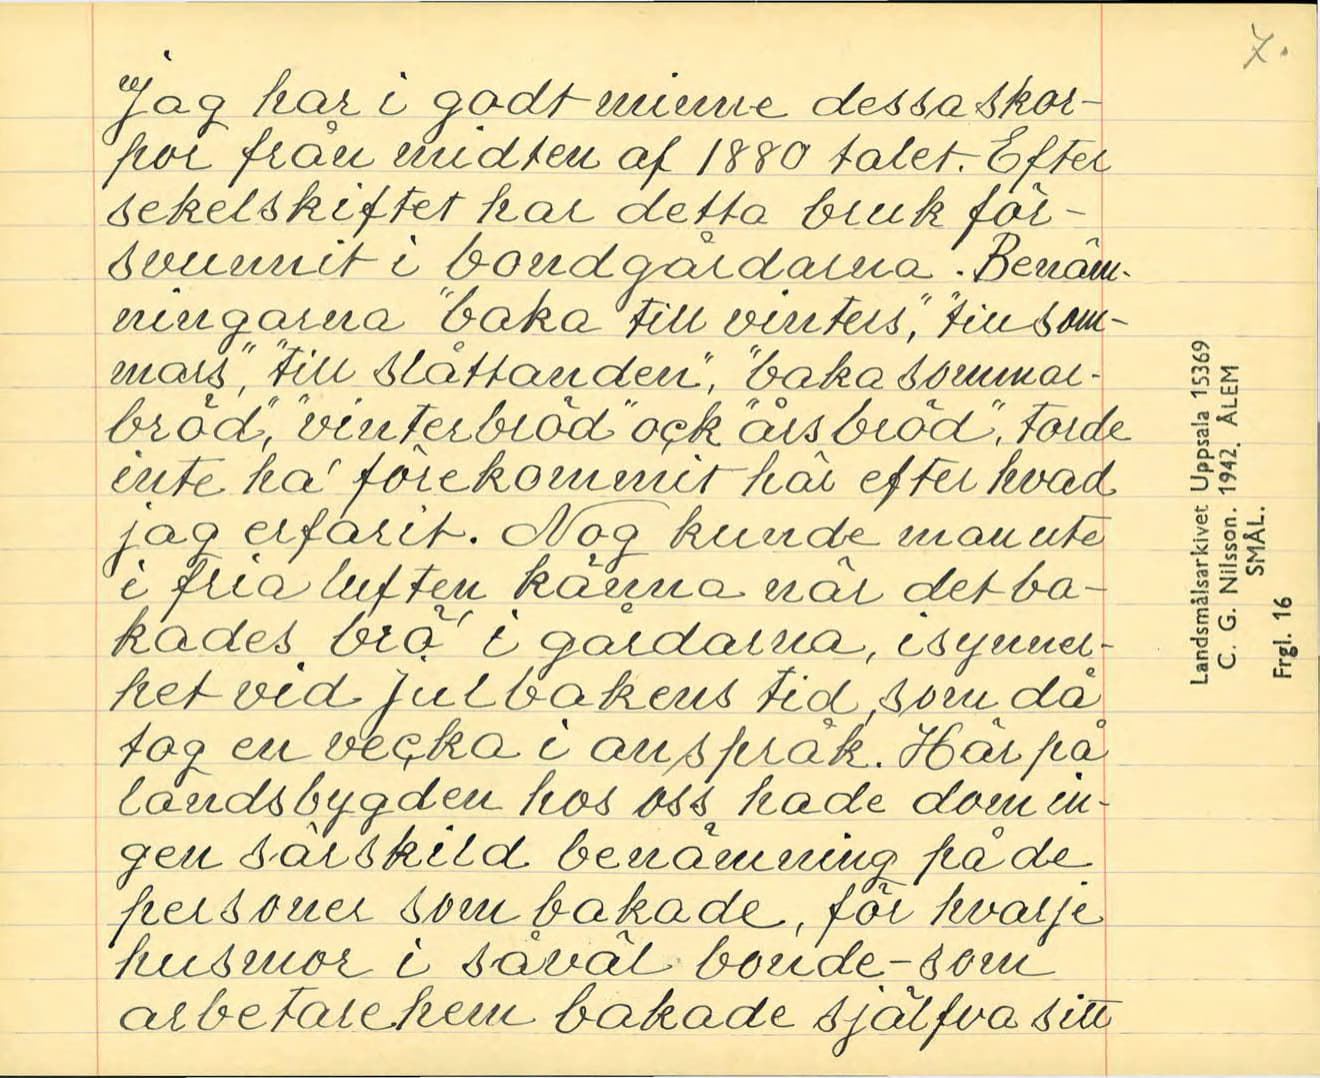 7.
Jag har i godt minne dessa skor-
por från midten af 1880 talet. Efter
sekelskiftet har detta bruk för-
svunnit i bondgårdarna. Benäm-
ningarna "baka till vinters", "till som-
mars", "till slåttanden", "baka sommar-
bröd", "vinterbröd" ock "årsbröd", torde
inte ha' förekommit här efter hvad
jag erfarit. Nog kunde man ute
i fria luften känna när det ba-
kades brö' i gårdarna, isynner-
het vid julbakens tid, som då
tog en vecka i anspråk. Här på
landsbygden hos oss hade dom in-
gen särskild benämning på de
personer som bakade, för hvarje
husmor i såväl bonde-som
arbetarehem bakade själfva sitt
Landsmålsarkivet Uppsala 15369
C. G. Nilsson. 1942. ÅLEM
SMÅL.
Frgl. 16